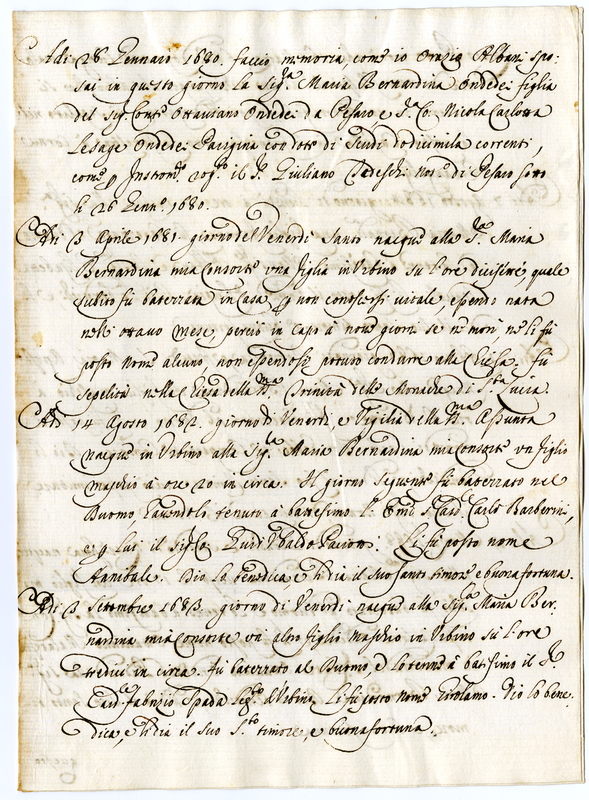 Adi 28 Gennaio 1680. faccio memoria, come io Orazio Albani spo:
sai in questo giorno la Sig.ra Maria Bernardina Ondedei figlia
del Sig. Conte Ottaviano Ondedei da Pesaro e S.ra Co: Nicola Carlotta
Lesage Ondedei Parigina con dote di Scudi dodicimila correnti,
come p Instrom.to rog.to il S.r Giuliano Tedeschi not.o di Pesaro sotto
li 26 Genn.o 1680.
Adi 3 Aprile 1681. giorno del Venerdi Santo nacque alla S.ra Maria
Bernardina mia Consorte una figlia in Urbino su l'ore dicisette, quale
subito fù battezzata in Casa p non conoscersi vitale, essendo nata
nell' ottavo mese, perciò in capo à nove giorni se ne morì, ne li fù
posto nome alcuno, non essendosi potuto condurre alla Chiesa. fù
sepelita nella Chiesa della SS.ma Trinità delle Monache di S.ta Lucia.
Adi 14 Agosto 1682. giorno di Venerdi, e Vigilia della SS.ma Assunta
nacque in Urbino alla Sig.ra Maria Bernardina mia Consorte un figlio
maschio à ore 20 in circa. Il giorno seguente fù battezzato nel
Duomo, havendolo tenuto à battesimo l' Em.o S. Card. Carlo Barberini,
e p Lui il Sig. Co: Guid' Ubaldo Pacioni. Li fù posto nome
Annibale. Dio lo benedica e li dia il suo santo timore e buona fortuna.
Adi 3 Settembre 1683. giorno di Venerdi nacque alla Sig.ra Maria Ber:
nardina mia Consorte un altro figlio maschio in Urbino su l'ore
tredici in circa. fù battezzato al Duomo, e lo tenne à batesimo il S.r
Card.le Fabrizio Spada Leg.to d'Urbino. Li fù posto nome Girolamo. Dio lo bene:
dica, e li dia il suo S.to timore, e buona fortuna.